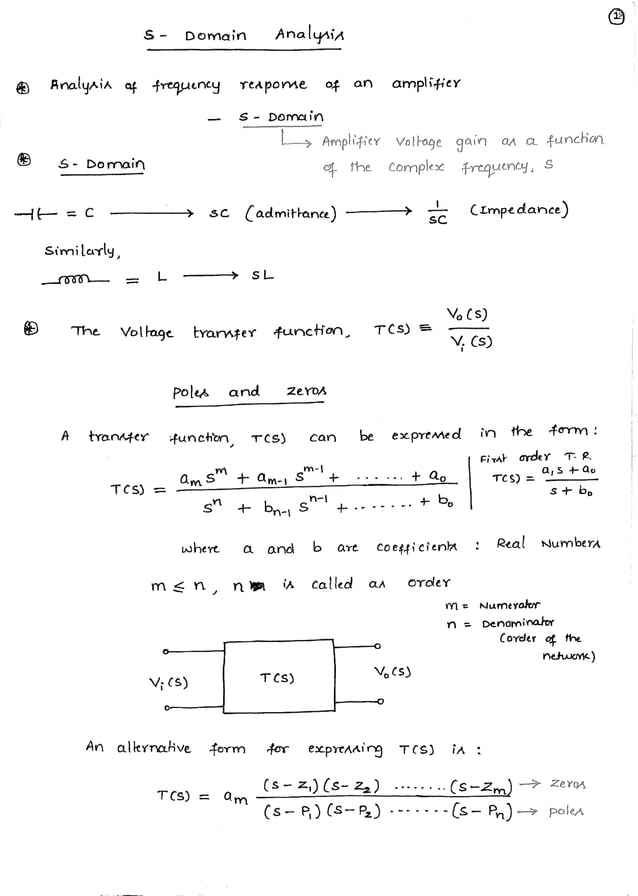 1
S - Domain Analysis
Analysis of frequency response of an amplifier
— S - Domain
Amplifier Voltage gain as a function
of the complex frequency, S
S - Domain
= C → SC (admittance) → 1/SC (Impedance)
Similarly,
= L → SL
The Voltage transfer function, T(S) ≡ Vo(S)/Vi(S)
Poles and zeros
A transfer function, T(S) can be expressed in the form :
T(S) = (a_m S^m + a_{m-1} S^{m-1} + ...... + a_0) / (S^n + b_{n-1} S^{n-1} + ....... + b_0)
First order T.R
T(S) = (a_1 S + a_0) / (S + b_0)
where a and b are coefficients : Real Numbers
m ≤ n, n is called as order
m = Numerator
n = Denominator
(order of the
network)
Vi(S) T(S) Vo(S)
An alternative form for expressing T(S) is :
T(S) = a_m (S - Z_1)(S - Z_2) ........ (S - Z_m) → zeros
(S - P_1)(S - P_2) ....... (S - P_n) → poles